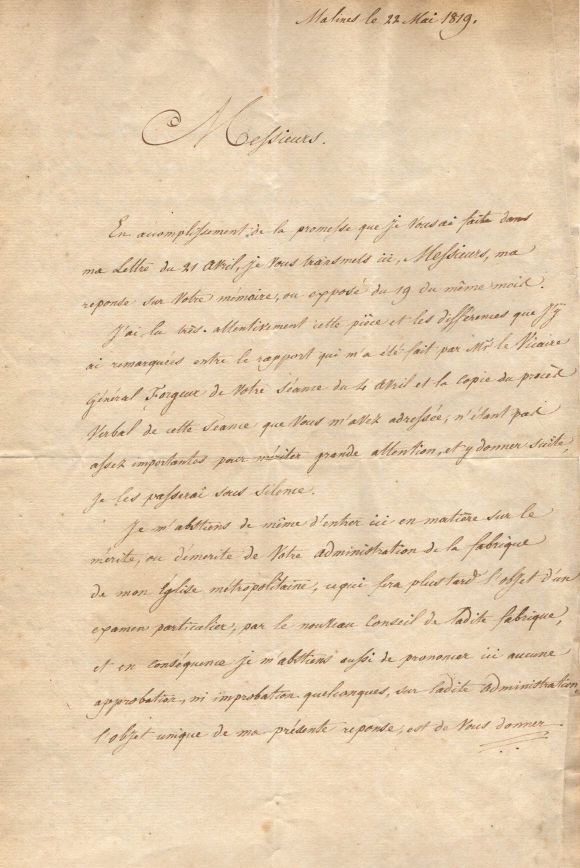 Malines le 22 Mai 1819.
Messieurs.
En accomplissement de la promesse que je Vous ai faite dans
ma Lettre du 21 Avril, je Vous transmets ici, Messieurs, ma
reponse sur Votre mémoire, ou exposé du 19 du même mois.
J'ai lu très-attentivement cette pièce et les différences que j'y
ai remarquées entre le rapport qui m'a été fait par Mr. le Vicaire
Général Forgeur de Votre Séance du 4 Avril et la copie du procès
Verbal de cette Séance que Vous m'avez adressée, n'étant pas
assez importantes pour mériter grande attention, et y donner suite,
je les passerai sous silence.
Je m'abstiens de même d'entrer ici en matière sur le
mérite, ou démerite de Votre administration de la fabrique
de mon Église métropolitaine, ce qui fera plus tard l'objet d'un
examen particulier, par le nouveau Conseil de ladite fabrique,
et en conséquence je m'abstiens aussi de prononcer ici aucune
approbation, ni improbation quelconques, sur ladite administration,
l'objet unique de ma présente reponse, est de Vous donner